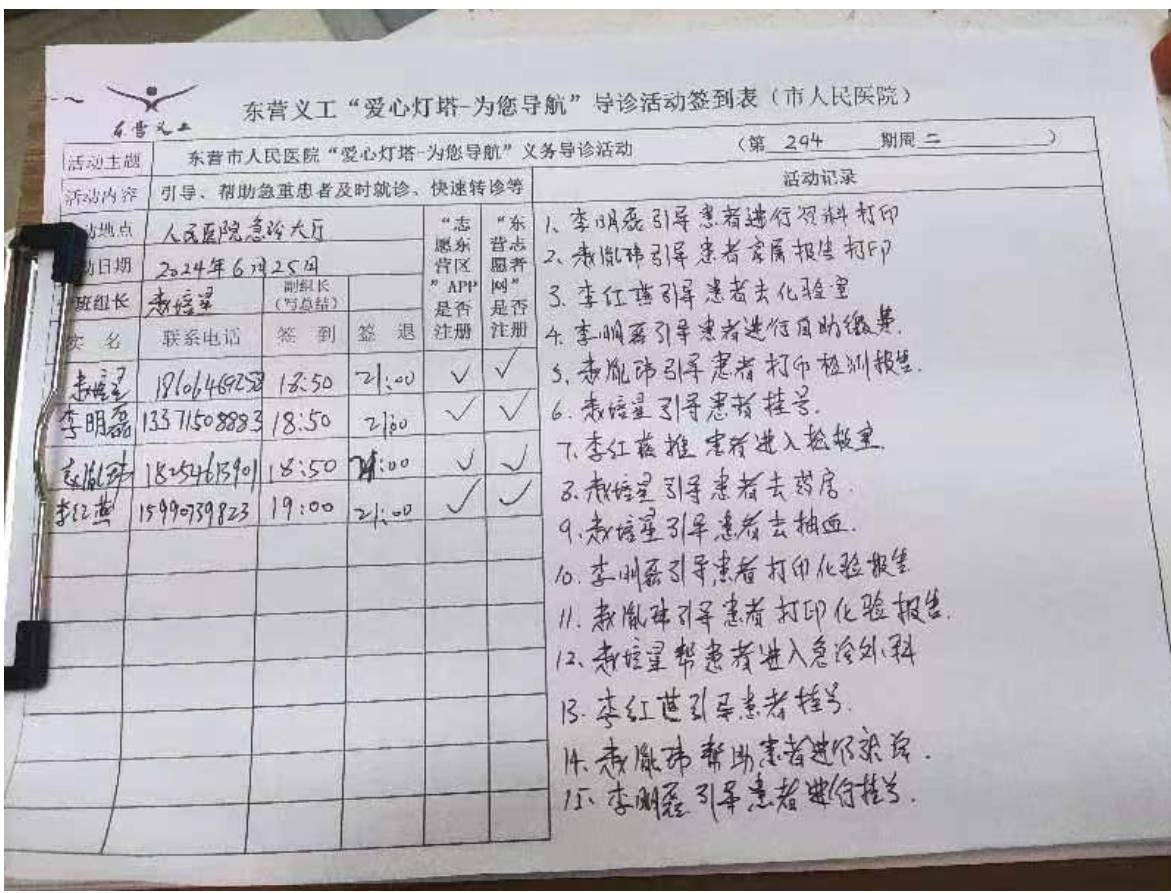 东营义工
东营义工“爱心灯塔-为您导航”导诊活动签到表(市人民医院)
活动主题 东营市人民医院“爱心灯塔-为您导航”义务导诊活动 (第 294 期周二 )
活动内容 引导、帮助急重患者及时就诊、快速转诊等 活动记录
动地点 人民医院急诊大厅
动日期 2024年6月25日
班组长 培星 副组长(写总结)
“志愿东营区”APP是否注册 “东营志愿者网”是否注册
名 联系电话 签到 签退
培星 18:50 21:00 ✓ ✓
李明磊 13371508883 18:50 21:00 ✓ ✓
18254613901 18:50 21:00 ✓ ✓
李红燕 15990739823 19:00 21:00 ✓ ✓
1、李明磊引导患者进行资料打印
2、胤玮引导患者家属报告打印
3、李红燕引导患者去化验室
4、李明磊引导患者进行自助缴费.
5、胤玮引导患者打印检测报告.
6、培星引导患者挂号.
7、李红燕推患者进入抢救室.
8、培星引导患者去药房.
9、培星引导患者去抽血.
10、李明磊引导患者打印化验报告
11、胤玮引导患者打印化验报告.
12、培星帮患者进入急诊外科
13、李红燕引导患者挂号.
14、胤玮帮助患者进行.
15、李明磊引导患者进行挂号.